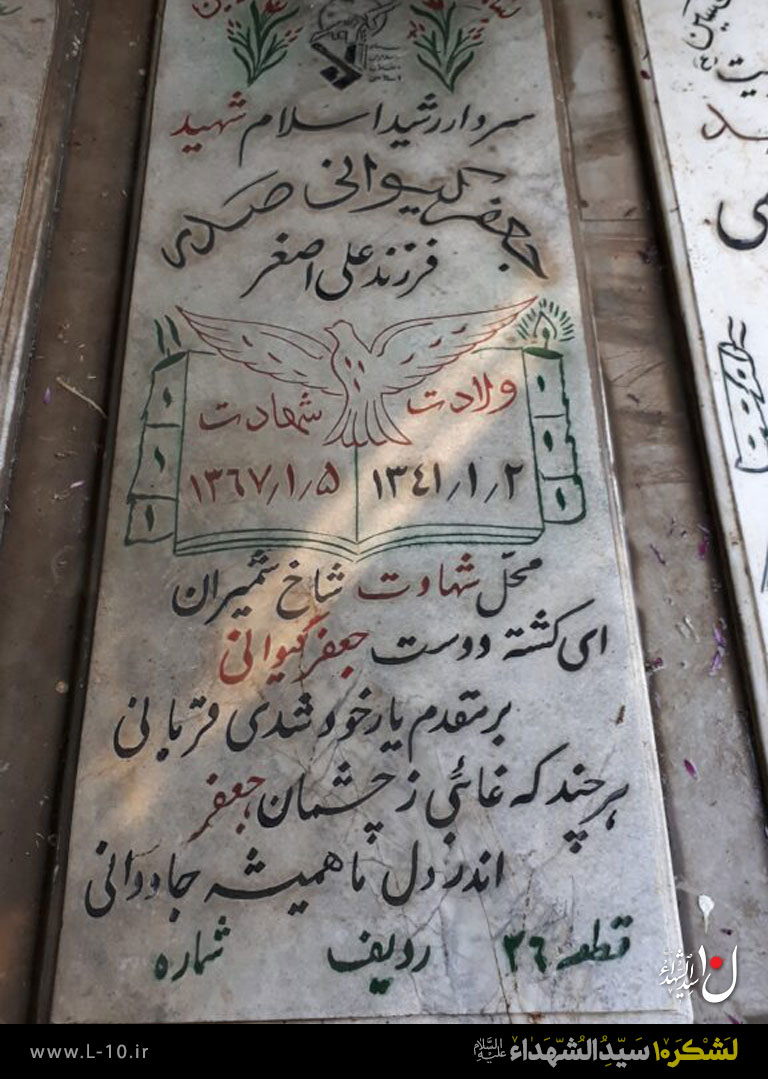 سردار رشید اسلام شهید
جعفر کیوانی صدر
فرزند علی اصغر
ولادت شهادت
۱۳٤۱/۱/۲ ۱۳٦۷/۱/۵
محلّ شهادت شاخ شمیران
ای کشته دوست جعفر کیوانی
بر مقدم یار خود شدی قربانی
هر چند که غائبی ز چشمان جعفر
اندر دل ما همیشه جاودانی
قطعه ۲٦ ردیف شماره
ل۱۰ سیدالشهداء
www.L-10.ir
لشکر۱۰ سیّدُالشّهَداء علیه‌السلام